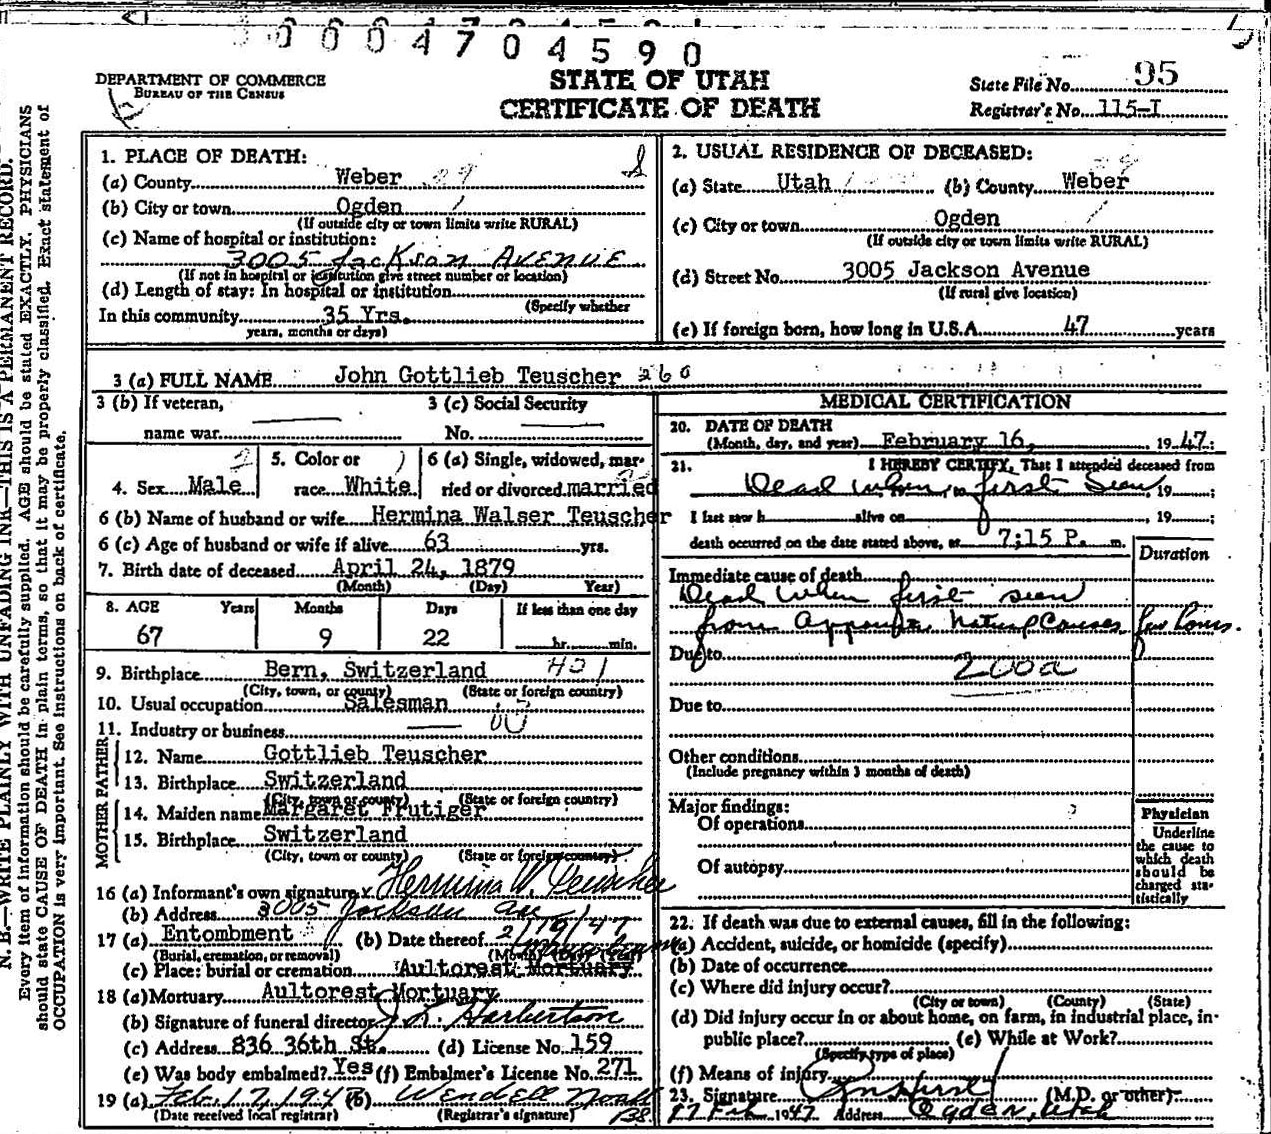 0000470459 0
DEPARTMENT OF COMMERCE
BUREAU OF THE CENSUS
STATE OF UTAH
CERTIFICATE OF DEATH
State File No. 95
Registrar's No. 115-I
N. B.—WRITE PLAINLY WITH UNFADING INK—THIS IS A PERMANENT RECORD.
Every item of information should be carefully supplied. AGE should be stated EXACTLY. PHYSICIANS
should state CAUSE OF DEATH in plain terms, so that it may be properly classified. Exact statement of
OCCUPATION is very important. See instructions on back of certificate.
1. PLACE OF DEATH:
(a) County Weber
(b) City or town Ogden
(If outside city or town limits write RURAL)
(c) Name of hospital or institution:
3005 Jackson AVENUE
(If not in hospital or institution give street number or location)
(d) Length of stay: In hospital or institution
(Specify whether
In this community 35 Yrs.
years, months or days)
2. USUAL RESIDENCE OF DECEASED:
(a) State Utah (b) County Weber
(c) City or town Ogden
(If outside city or town limits write RURAL)
(d) Street No. 3005 Jackson Avenue
(If rural give location)
(e) If foreign born, how long in U.S.A. 47 years
3 (a) FULL NAME John Gottlieb Teuscher 260
3 (b) If veteran,
name war
3 (c) Social Security
No.
4. Sex Male
5. Color or
race White
6 (a) Single, widowed, mar-
ried or divorced married
6 (b) Name of husband or wife Hermina Walser Teuscher
6 (c) Age of husband or wife if alive 63 yrs.
7. Birth date of deceased April 24, 1879
(Month) (Day) Year)
8. AGE Years Months Days If less than one day
67 9 22 hr. min.
9. Birthplace Bern, Switzerland
(City, town, or county) (State or foreign country)
10. Usual occupation Salesman
11. Industry or business
FATHER
12. Name Gottlieb Teuscher
13. Birthplace Switzerland
(City, town or county) (State or foreign country)
MOTHER
14. Maiden name Margaret Frutiger
15. Birthplace Switzerland
(City, town or county) (State or foreign country)
16 (a) Informant's own signature x Hermina W. Teuscher
(b) Address 3005 Jackson Ave
17 (a) Entombment (b) Date thereof 2/19/47
(Burial, cremation, or removal) (Month) (Day) (Year)
(c) Place: burial or cremation Aultorest Mortuary
18 (a) Mortuary Aultorest Mortuary
(b) Signature of funeral director J L. Harbertson
(c) Address 836 36th St. (d) License No. 159
(e) Was body embalmed? Yes (f) Embalmer's License No. 271
19 (a) Feb. 17, 1947 (b) Wendell Noall
(Date received local registrar) (Registrar's signature)
MEDICAL CERTIFICATION
20. DATE OF DEATH
(Month, day, and year) February 16, 19 47;
21. I HEREBY CERTIFY, That I attended deceased from
Dead when first seen, 19 ;
I last saw h alive on , 19 ;
death occurred on the date stated above, at 7:15 P. m.
Duration
Immediate cause of death
Dead when first seen
from Apparent Natural Causes few hours.
Due to 200a
Due to
Other conditions
(Include pregnancy within 3 months of death)
Major findings:
Of operations
Of autopsy
Physician
Underline
the cause to
which death
should be
charged sta-
tistically
22. If death was due to external causes, fill in the following:
(a) Accident, suicide, or homicide (specify)
(b) Date of occurrence
(c) Where did injury occur?
(City or town) (County) (State)
(d) Did injury occur in or about home, on farm, in industrial place, in-
public place? (e) While at Work?
(Specify type of place)
(f) Means of injury
23. Signature (M.D. or other)
17 Feb. 1947 Address Ogden, Utah